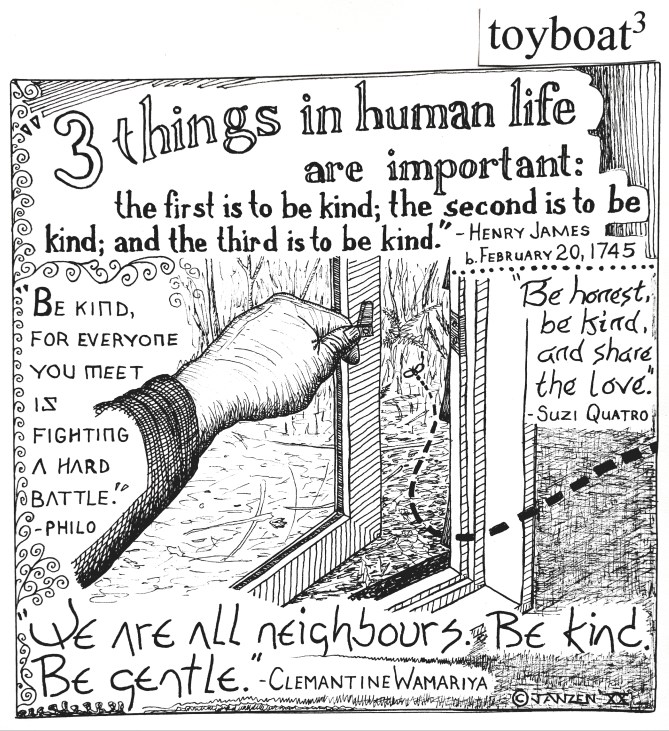 toyboat³
"3 things in human life
are important:
the first is to be kind; the second is to be
kind; and the third is to be kind." - HENRY JAMES
b. FEBRUARY 20, 1745
"BE KIND,
FOR EVERYONE
YOU MEET
IS
FIGHTING
A HARD
BATTLE."
-PHILO
"Be honest,
be kind,
and share
the love."
-SUZI QUATRO
"WE ARE All neighbours. BE kind.
BE gentle." -CLEMANTINE WAMARIYA
© JANZEN 'XX